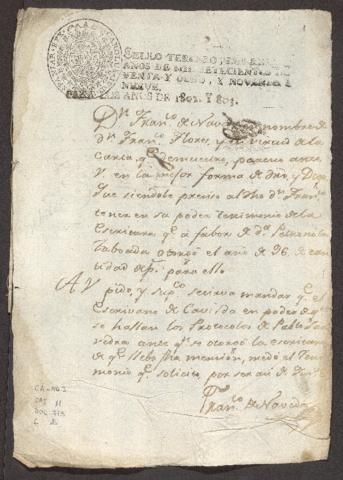 SELLO TERCERO, UN REAL
AÑOS DE MIL SETECIENTOS NO
VENTA Y OCHO, Y NOVENTA Y
NUEVE.
PARA LOS AÑOS DE 1802. Y 803.
Dn. Franco. de Naveda nombre de
dn. Franco. Flores, y en virtud de la
Carta qe. demuestro, paresco ante
V. en la mejor forma de dro, y Digo
Que siendole preciso al dho dn. Franco.
tener en su poder testimonio de la
Escritura qe. â fabor de da. Petrona
Taboada otorgó el año de 96. de can
tidad de ps. para ello
A V pido, y supco. se sirva mandar qe. el
Escrivano de Cavildo en poder de qn.
se hallan los Protocolos de Pablo
ante qn. se otorgó la escritura
de qe. llebo fha mencion, me dé el Testi
monio qe. solicito, por ser asi de Justa.
Franco. de Naveda
CA-